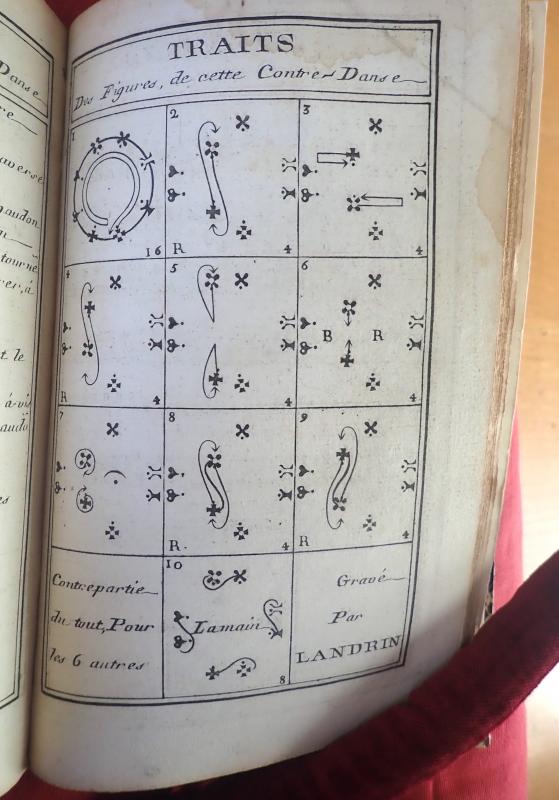 Danse
re
averse
gaudon
n
tourne
res, à
t le
à-vis
audo
es
TRAITS
Des Figures, de cette Contre Danse
1
16
2
R
4
3
4
4
R
4
5
4
6
B R
4
7
8
R
4
9
R
4
Contrepartie
du tout, Pour
les 6 autres
10
Lamain
8
Gravé
Par
LANDRIN